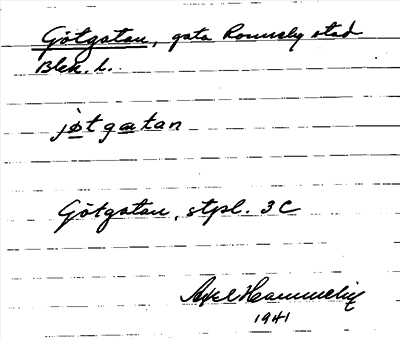 Götgatan, gata Ronneby stad
Blek. l.
jø̀tgatan
Götgatan, stpl. 3C
Axel Hammelin
1941